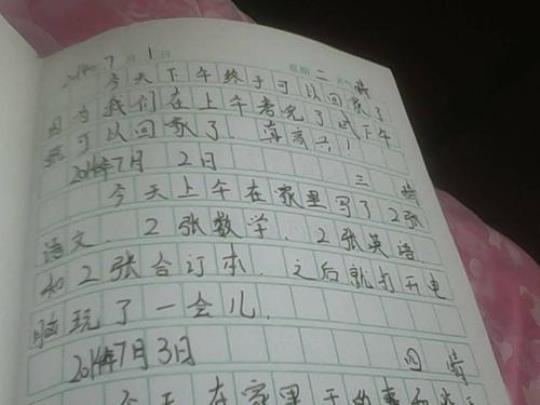 2014年7月1日 星期二 天气晴
今天下午终于可以回家了
因为我们在上午考完了试下午
就可以回家了。真高兴!
2014年7月2日 三 晴
今天上午在家里写了2张
语文、2张数学、2张英语
和2张合订本。之后就打开电
脑玩了一会儿。
2014年7月3日 四 晴
今天在家里干的事和